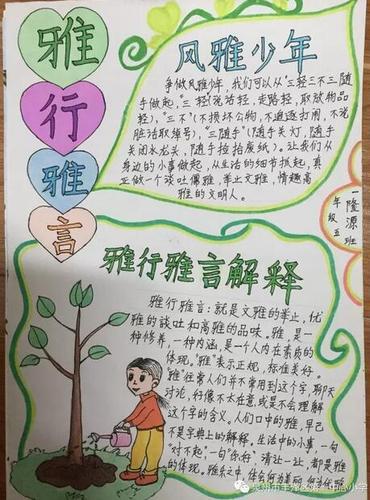 雅
行
雅
言
风雅少年
争做风雅少年,我们可以从“三轻三不三随
手做起,”三轻(说话轻,走路轻,取放物品
轻),“三不”(不损坏公物,不追逐打闹,不说
脏话取绰号),“三随手”(随手关灯,随手
关闭水龙头,随手捡拾废纸)。让我们从
身边的小事做起,从生活的细节抓起,真
正做一个谈吐儒雅,举止文雅,情趣高
雅的文明人。
一隆源
年级五班
雅行雅言解释
雅行雅言:就是文雅的举止,优
雅的谈吐和高雅的品味。雅,是一
种修养,一种内涵,是一个人内在素质的
体现。“雅”表示正规,标准美好。
“雅”往常人们并不常用到这个字,聊天
讨论,好像不太在意,或是不会理解
这个字的含义。人们口中的雅,早已
不是字典上的解释。生活中的小事,一句
“对不起”,一句“你好”,清让一让,都是雅
的体现。雅